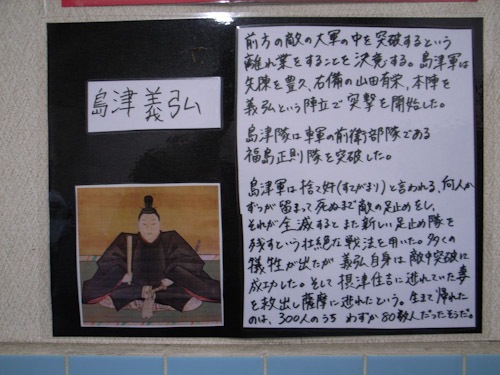 島津義弘
前方の敵の大軍の中を突破するという
離れ業をすることを決意する。島津軍は
先陣を豊久、右備の山田有栄、本陣を
義弘という陣立で突撃を開始した。
島津隊は東軍の前衛部隊である
福島正則隊を突破した。
島津軍は捨て奸(すてがまり)と言われる、何人か
ずつが留まって死ぬまで敵の足止めをし、
それが全滅するとまた新しい足止め隊を
残すという壮絶な戦法を用いた。多くの
犠牲が出たが義弘自身は敵中突破に
成功した。そして摂津住吉に逃れていた妻
を救出し薩摩に逃れたという。生きて帰れた
のは、300人のうちわずか80数人だったそうだ。